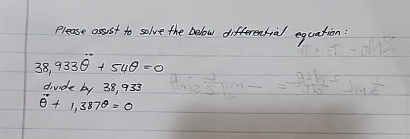 Please assist to solve the below differential equation:
38,933θ̈ + 54θ = 0
divide by 38,933
θ̈ + 1,387θ = 0